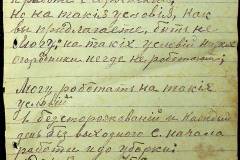 но на такія условія, как
вы предлагаете, быть не
могу; на таких условій
огородники негде не работают;
Могу работать на таких
условій
1. без страхованій и каждый
день без выходного с. начала
работы и до уборки;